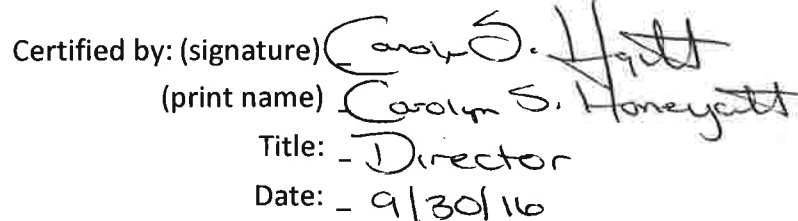 Certified by: (signature) Carolyn S.
(print name) Carolyn S. Honeycutt
Title: Director
Date: 9/30/16